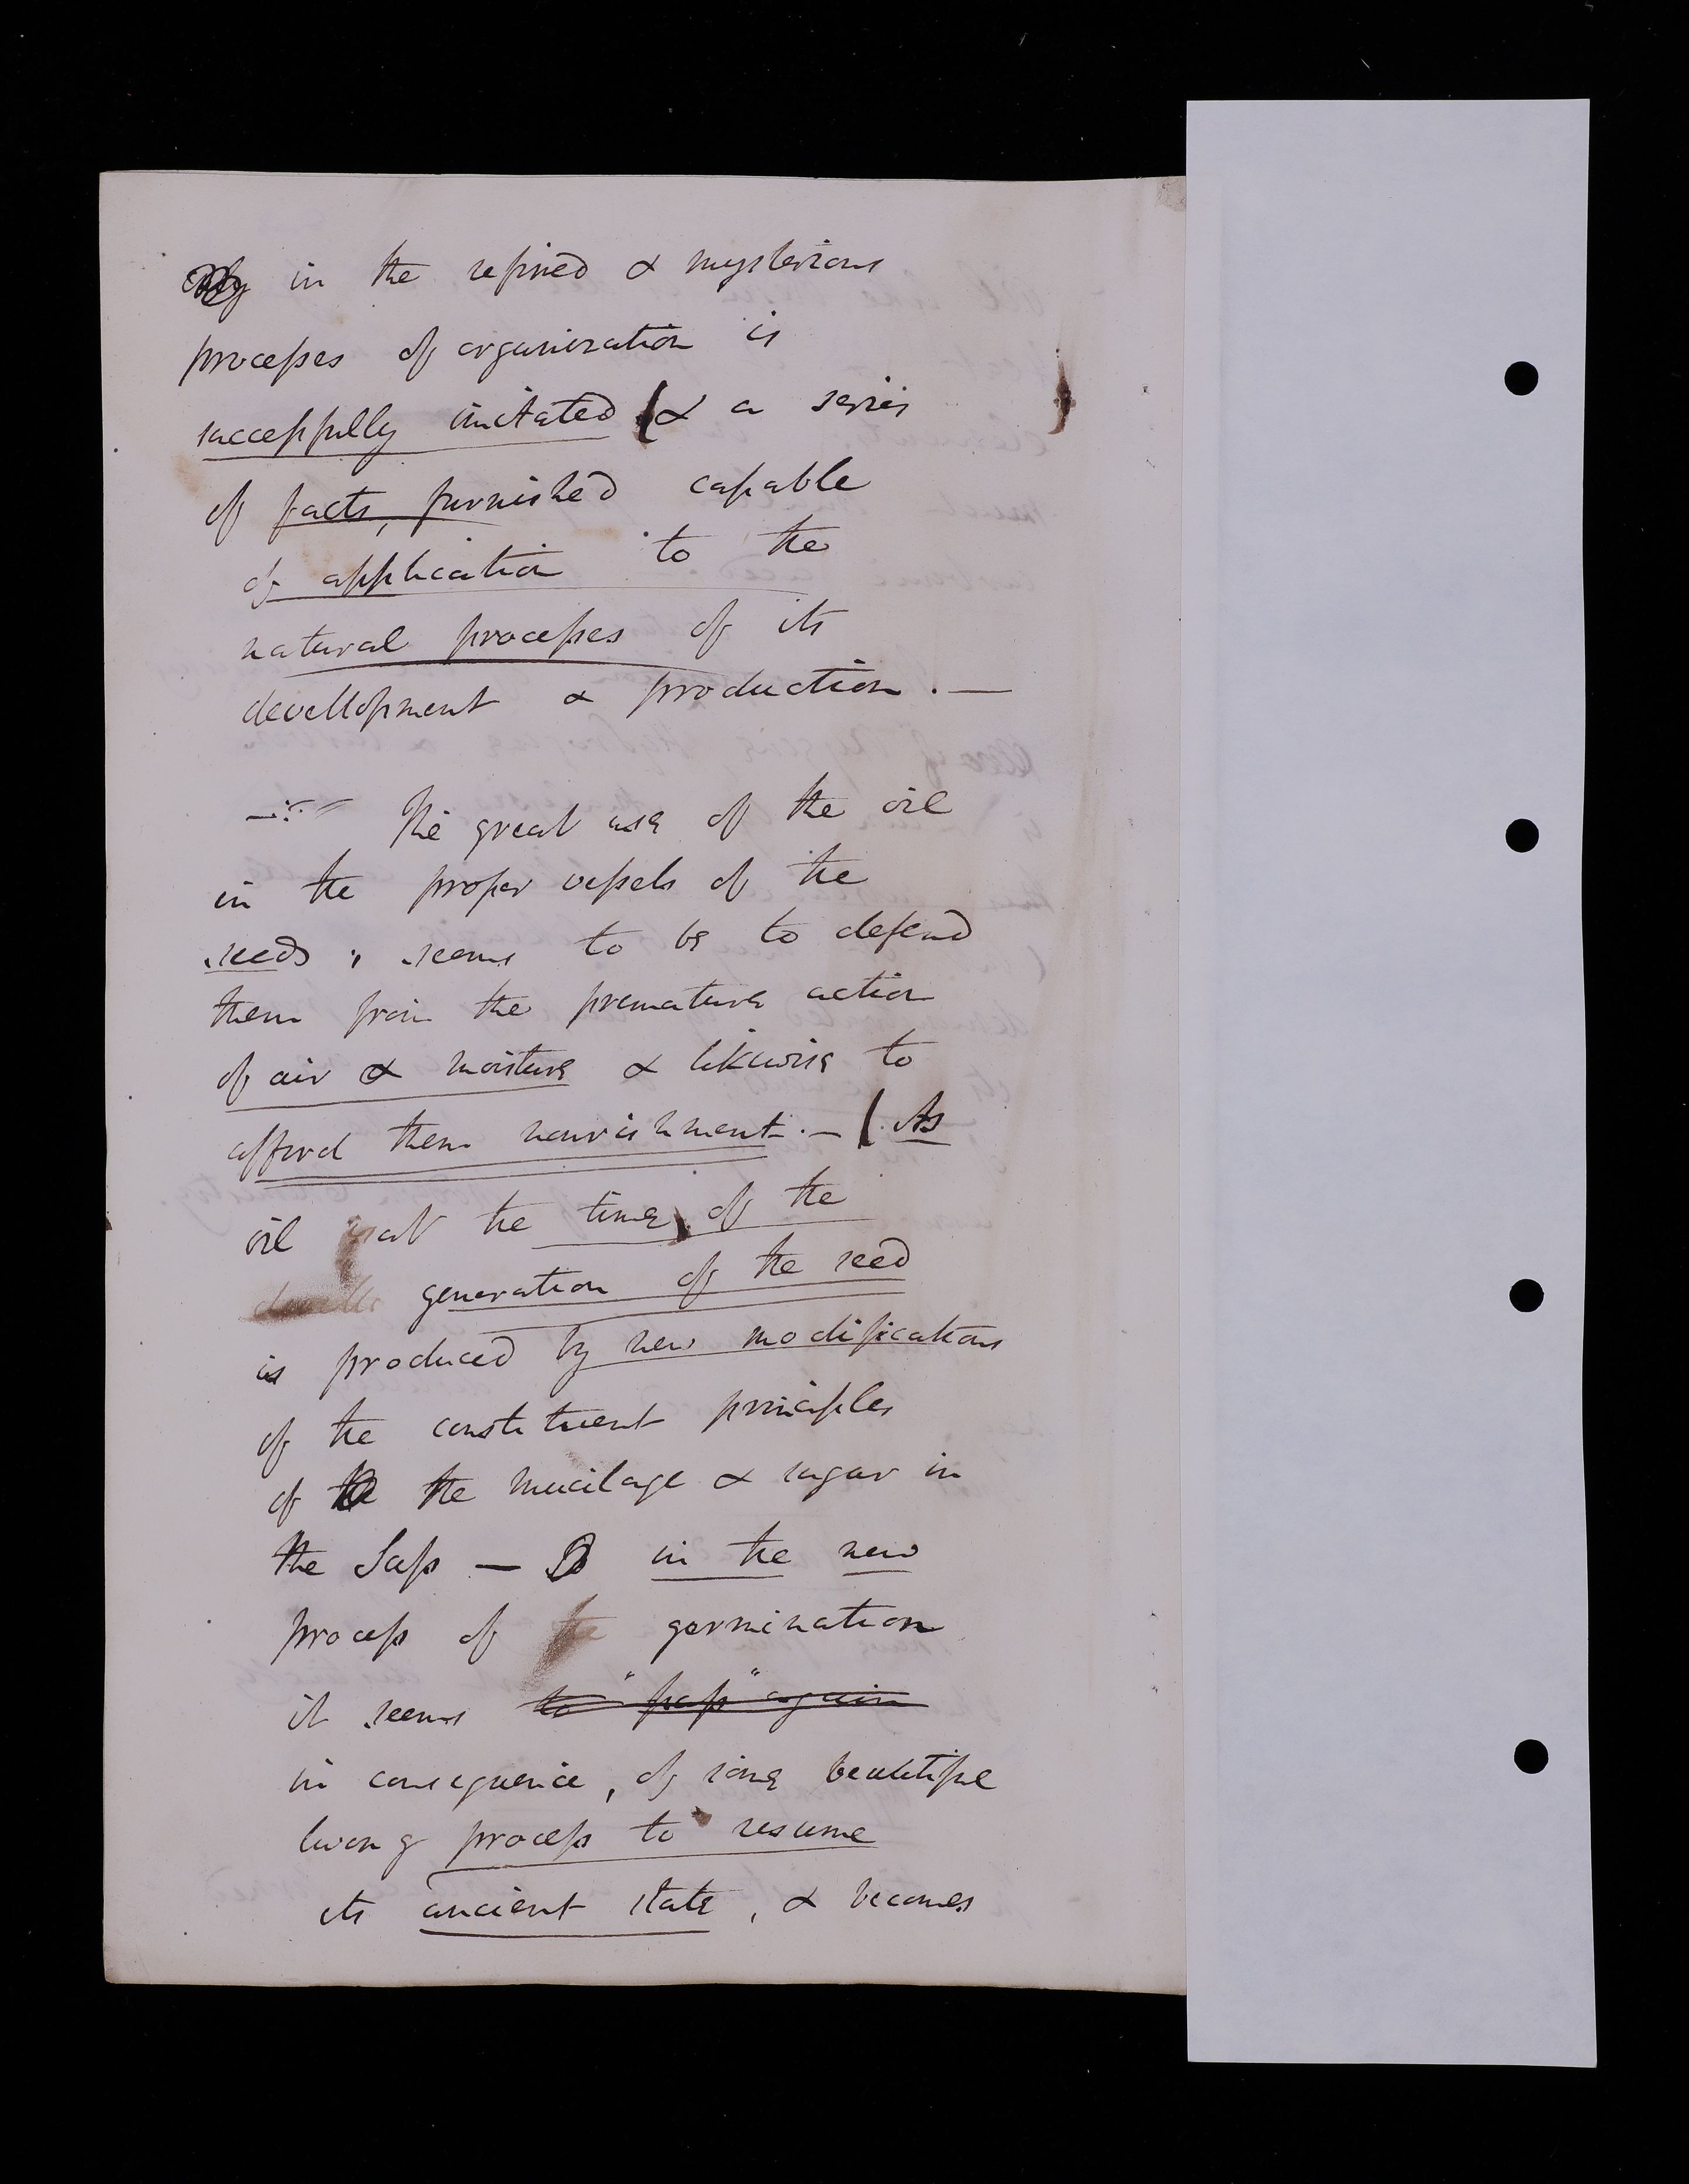 in the refined & mysterious
processes of organization is
successfully imitated (& a series
of facts, furnished capable
of application to the
natural processes of its
devellopment & production. —
The great use of the oil
in the proper vessels of the
seeds, seems to be to defend
them from the premature action
of air & moisture & likewise to
afford them nourishment. — ( As
oil at the time of the
generation of the seed
is produced by new modifications
of the constituent principles
of the mucilage & sugar in
the Sap — in the new
process of the germination
it seems to "pass" again
in consequence, of some beautiful
living process to resume
its ancient state, & becomes